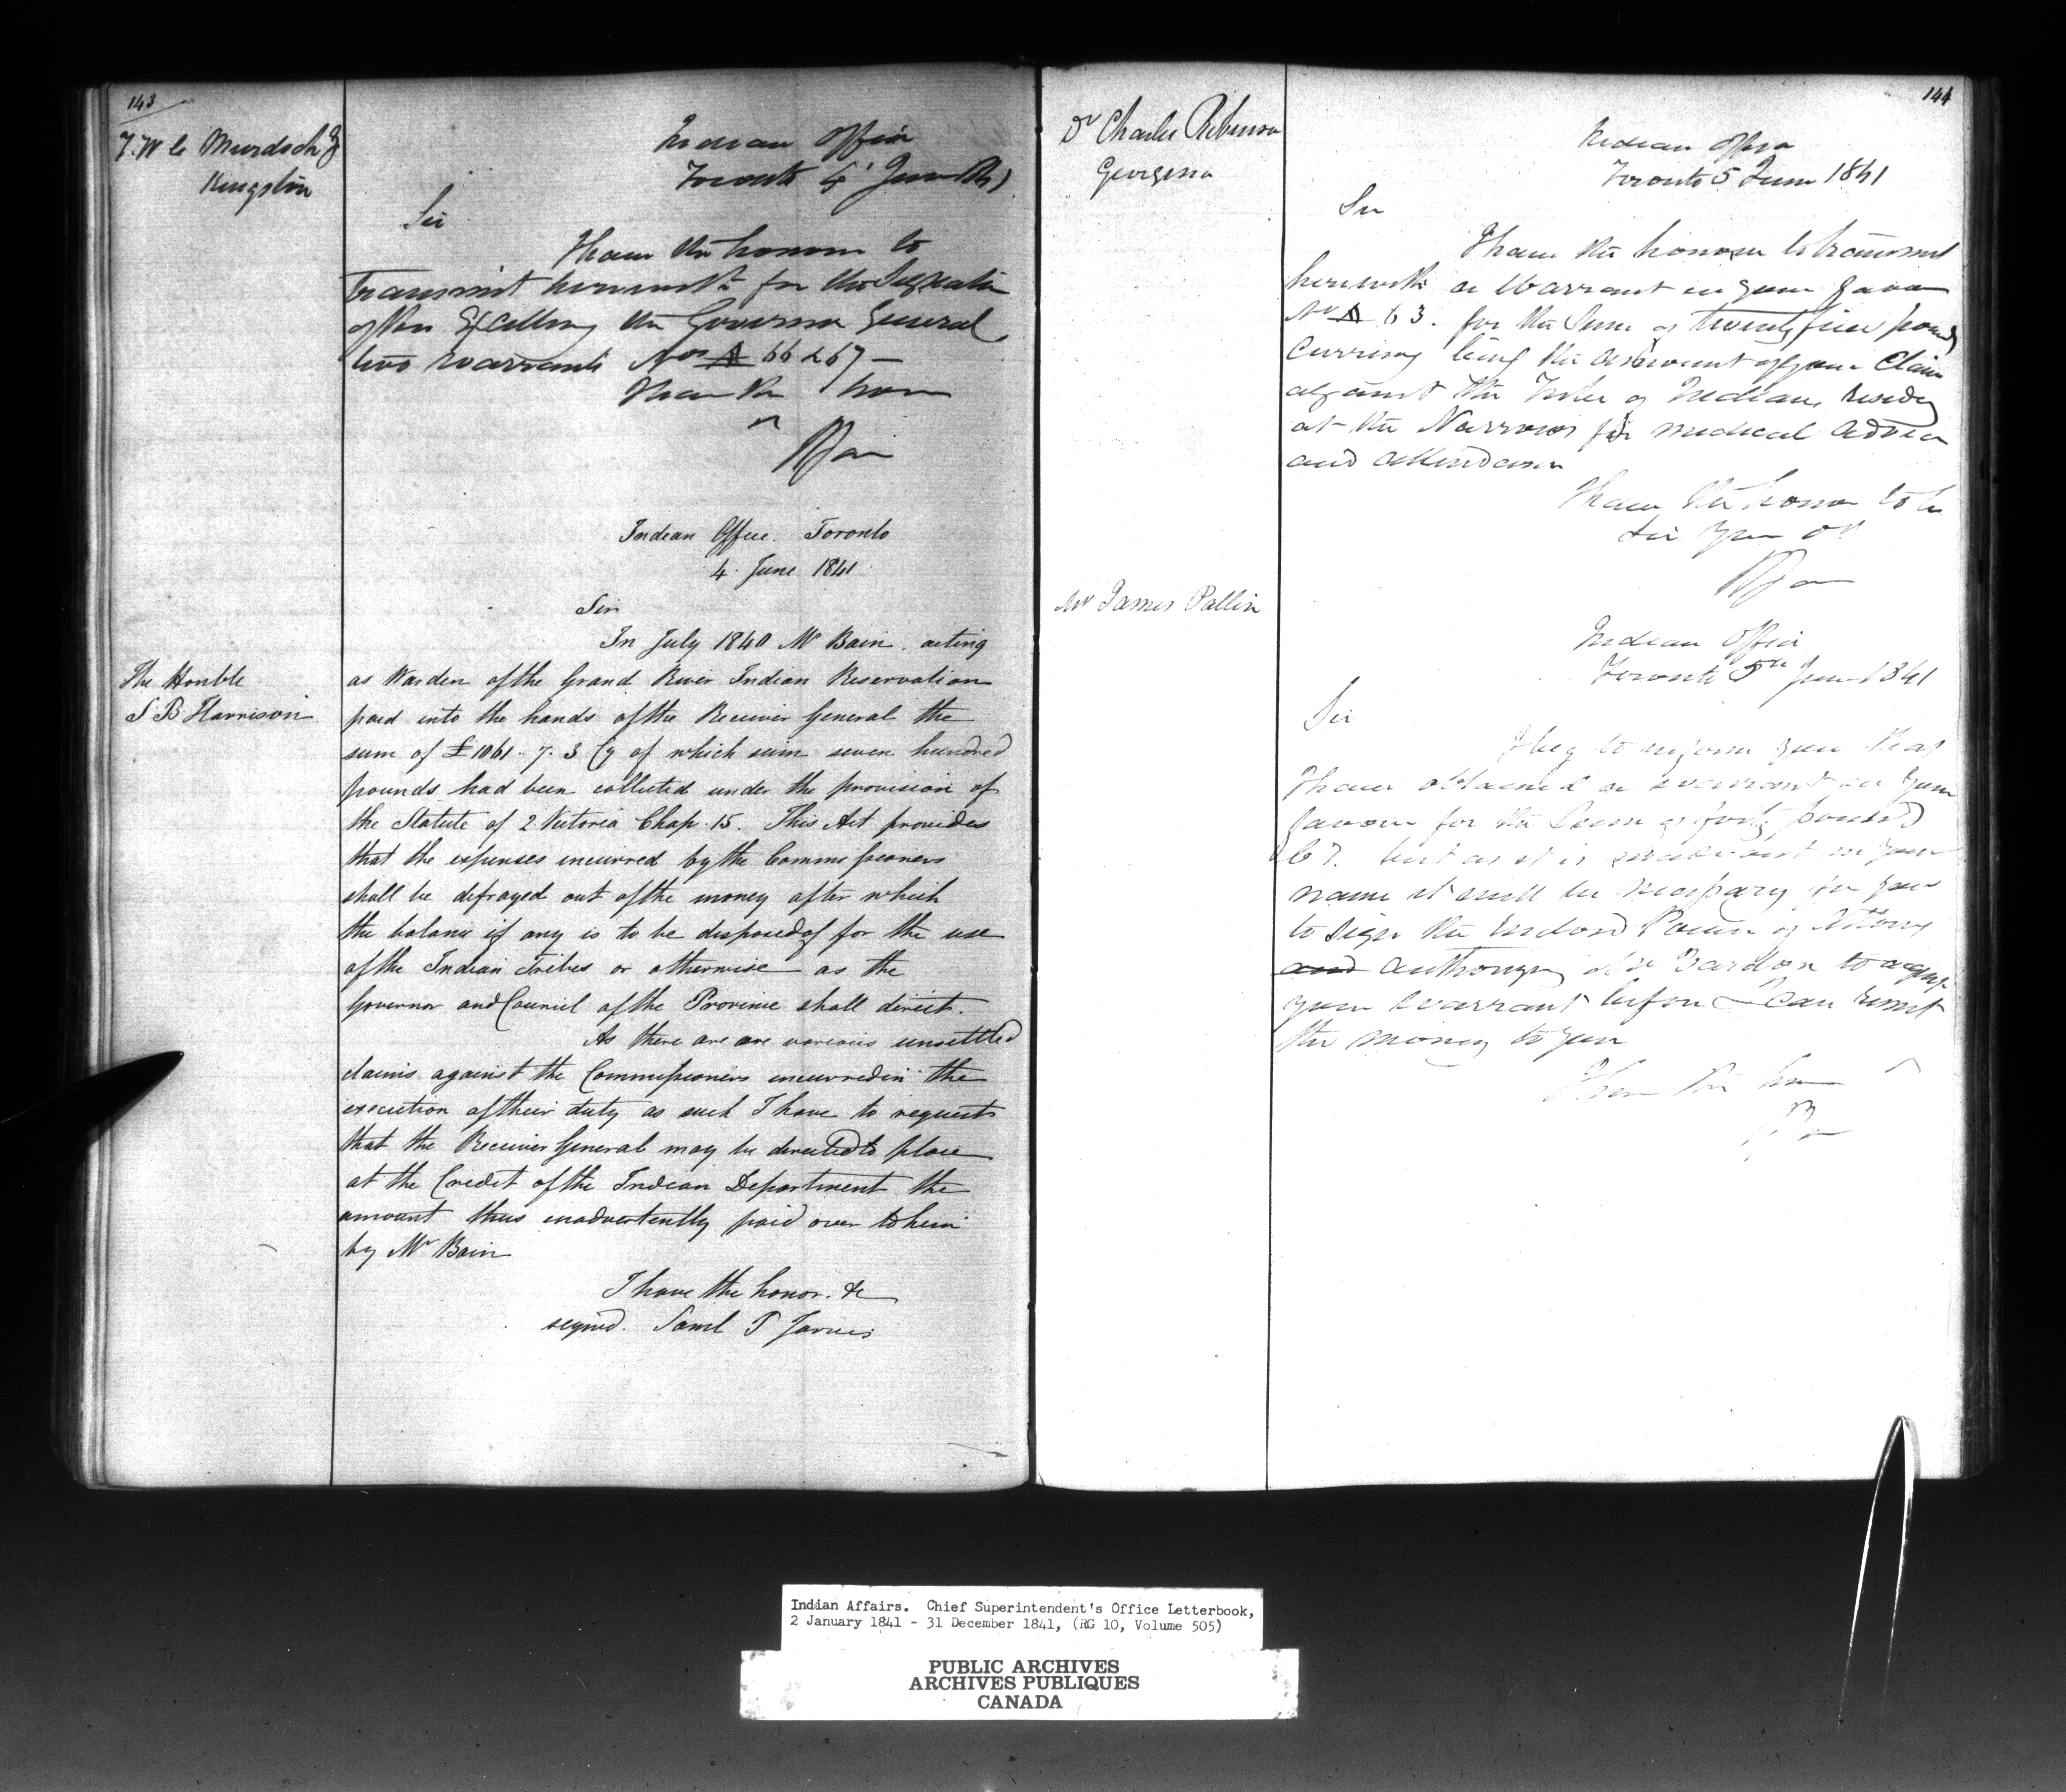 143
T. W. C. Murdoch
Kingston
Indian Office
Toronto 4 June
Sir
I have the honor to
transmit herewith for the Signature
of His Excellency the Governor General
two warrants Nos A 66 & 67 —
I have the honor
Indian Office. Toronto
4. June 1841
Sir
The Honble
S B Harrison
In July 1840 Mr Bain, acting
as Warden of the Grand River Indian Reservation
paid into the hands of the Receiver General the
sum of £1061. 7. 3 Cy of which sum seven hundred
pounds had been collected under the provision of
the Statute of 2 Victoria Chap. 15. This Act provides
that the expenses incurred by the Commissioners
shall be defrayed out of the money after which
the balance if any is to be disposed of for the use
of the Indian Tribes or otherwise as the
Governor and Council of the Province shall direct.
As there are are various unsettled
claims against the Commissioners incurred in the
execution of their duty as such I have to request
that the Receiver General may be directed to place
at the Credit of the Indian Department the
amount thus inadvertently paid over to him
by Mr Bain
I have the honor. &c
signed. Saml P Jarvis
144
Dr Charles Robinson
Georgina
Indian Office
Toronto 5 June 1841
Sir
I have the honour to transmit
herewith a Warrant in your favor
No A 63. for the Sum of twenty five pounds
Currency being the amount of your Claim
against the Tribe of Indians residing
at the Narrows for medical advice
and attendance
I have the honor to be
Sir Your
Mr James Pallin
Indian Office
Toronto 5th June 1841
Sir
I beg to inform you that
I have obtained a warrant in your
favour for the Sum of forty pounds
but as it is made out in your
name it will be necessary for you
to sign the enclosed Power of Attorney
and authorizing Mr Bardon to
your warrant before I can remit
the money to you
I have the honor
Indian Affairs. Chief Superintendent's Office Letterbook,
2 January 1841 - 31 December 1841, (RG 10, Volume 505)
PUBLIC ARCHIVES
ARCHIVES PUBLIQUES
CANADA